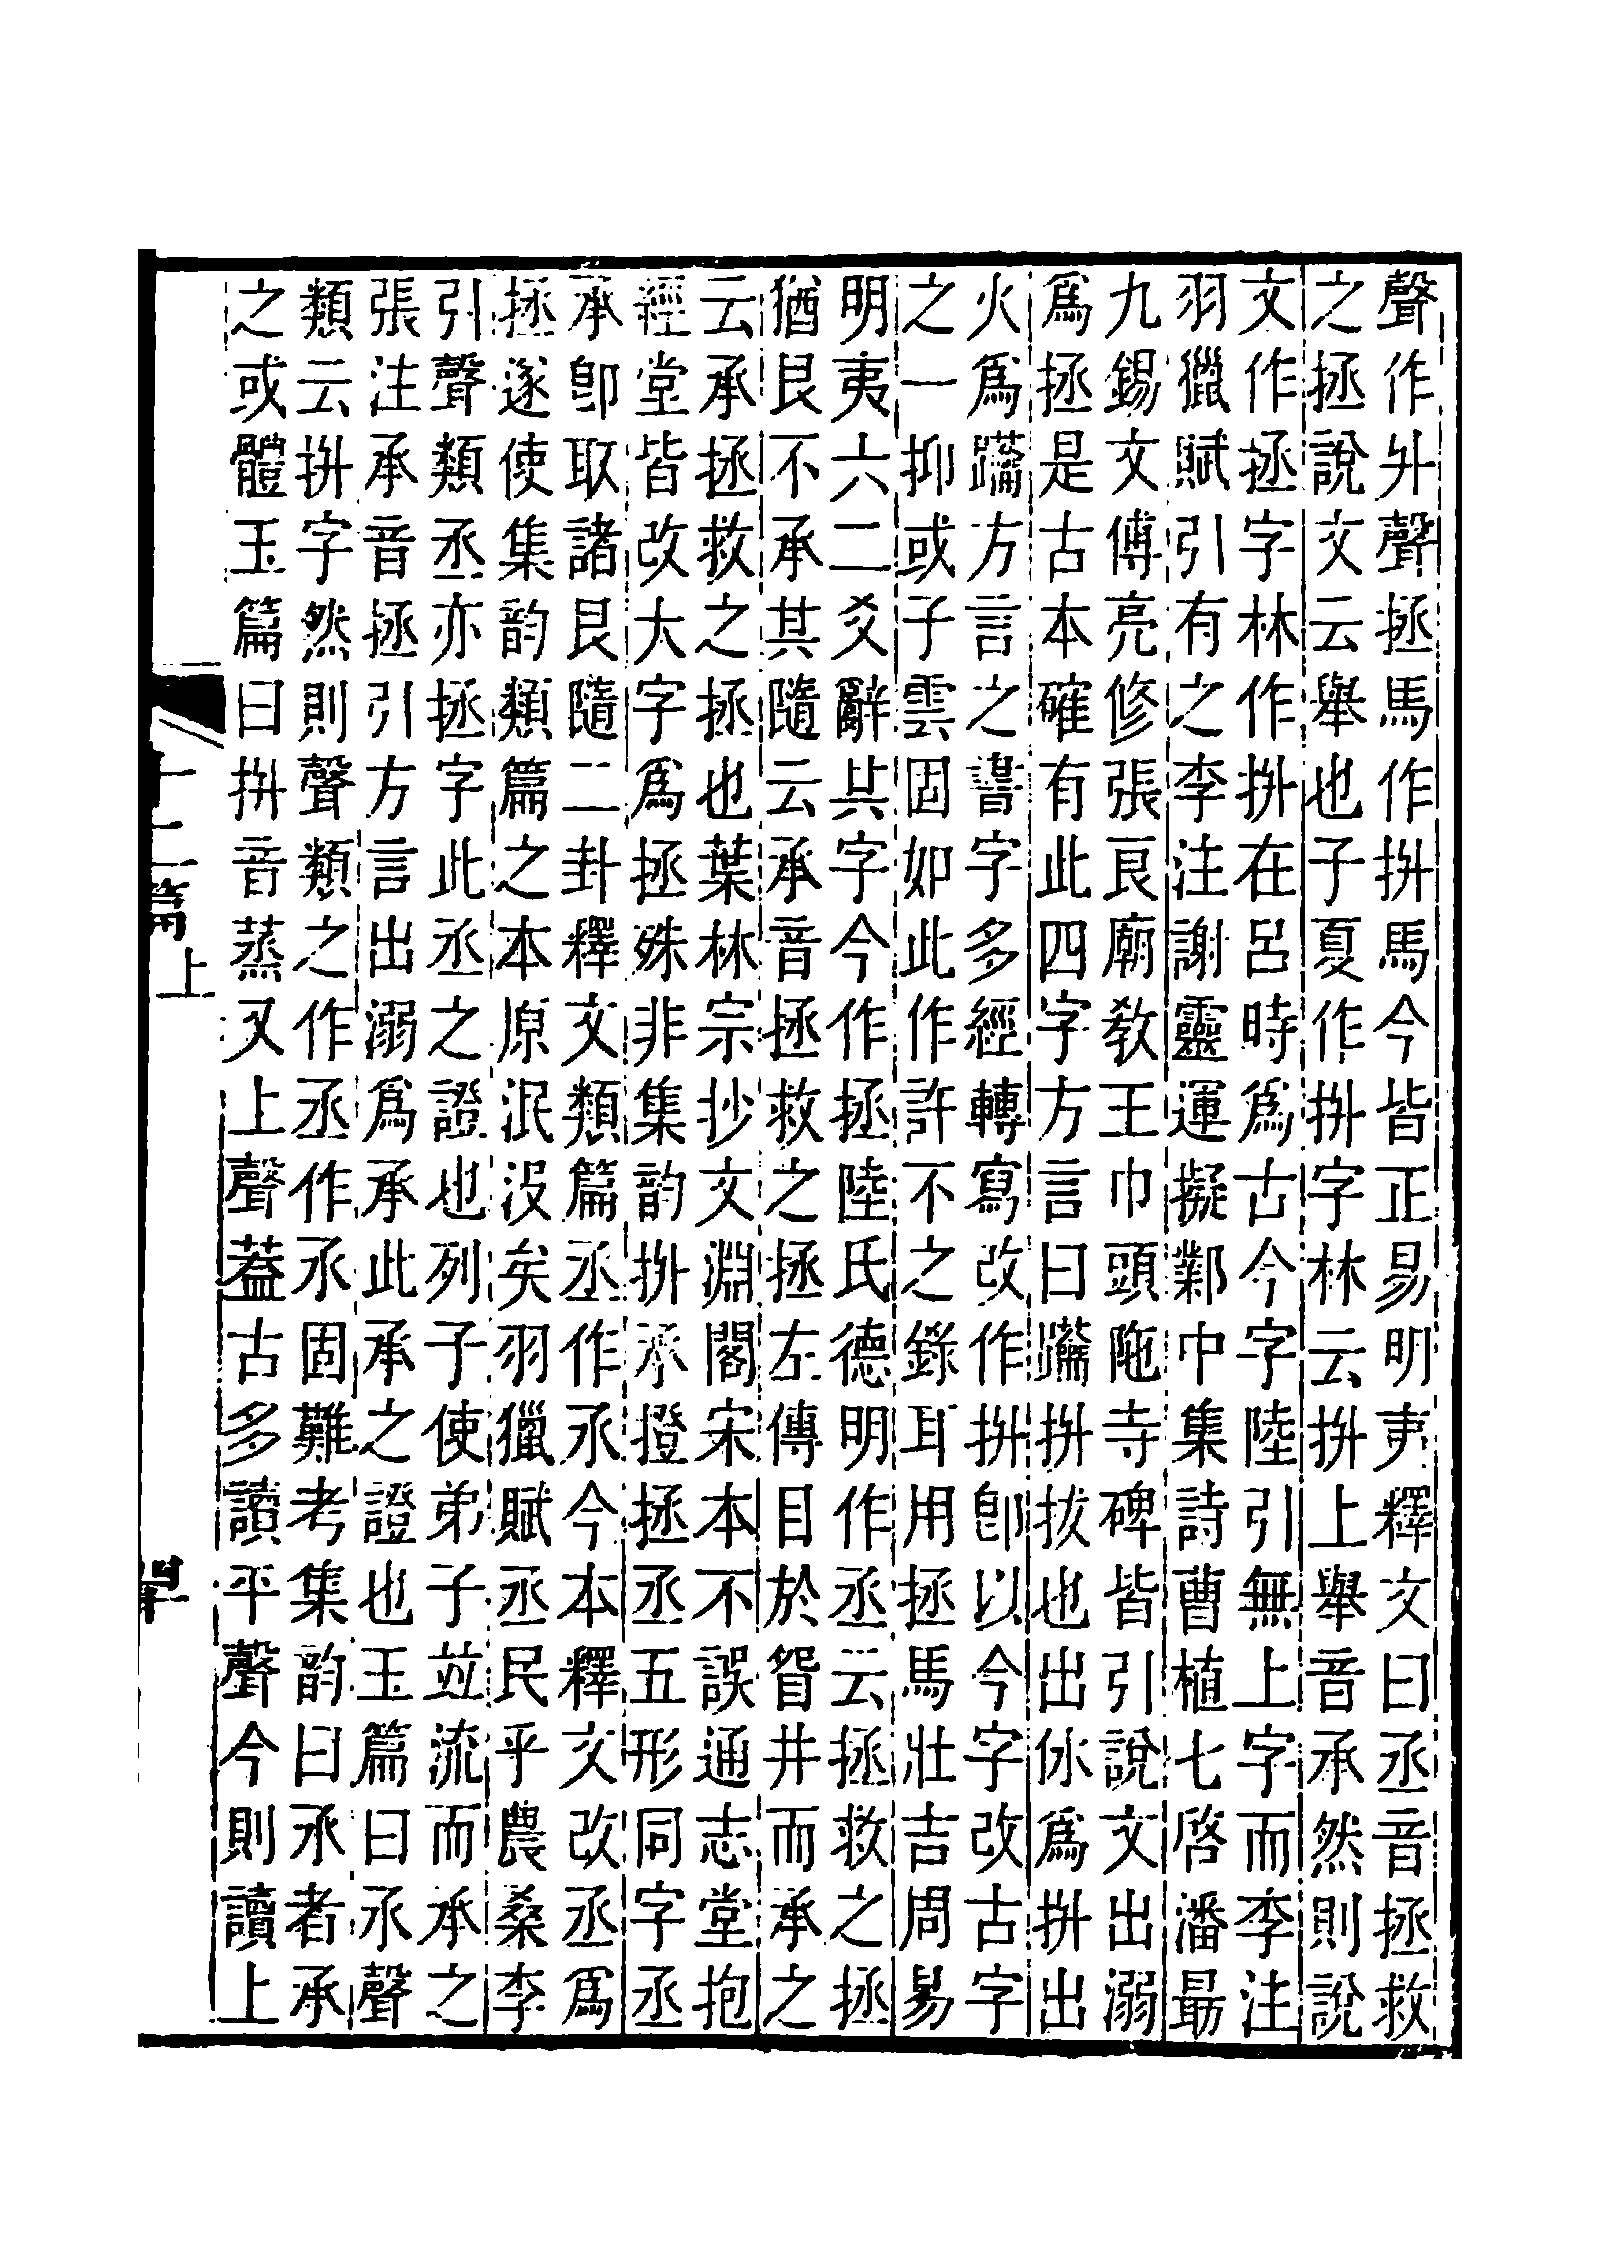 聲作外聲拯馬作拼馬今皆正易明夷釋文曰丞音拯救
之拯說文云舉也子夏作拼字林云拼上舉音承然則說
文作拯字林作拼在呂時爲古今字陸引無上字而李注
羽獵賦引有之李注謝靈運擬鄴中集詩曹植七啓潘最
九錫文傅亮修張良廟教王巾頭陁寺碑皆引說文出溺
爲拯是古本確有此四字方言曰躡拼拔也出休爲拼出
火爲躡方言之書字多經轉寫改作拼卽以今字改古字
之一抑或子雲固如此作許不之錄耳用拯馬壯吉周易
明夷六二爻辭共字今作拯陸氏德明作丞云拯救之拯
猶艮不承其隨云承音拯救之拯左傳目於眢井而承之
云承拯救之拯也葉林宗抄文淵閣宋本不誤通志堂抱
經堂皆改大字爲拯殊非集韵拼承撜拯丞五形同字丞
承卽取諸艮隨二卦釋文類篇丞作氶今本釋文改丞爲
拯遂使集韵類篇之本原泯沒矣羽獵賦丞民乎農桑李
引聲類丞亦拯字此丞之證也列子使弟子竝流而承之
張注承音拯引方言出溺爲承此承之證也玉篇曰氶聲
類云拼字然則聲類之作丞作氶固難考集韵曰氶者承
之或體玉篇曰拼音蒸又上聲葢古多讀平聲今則讀上
十二篇上